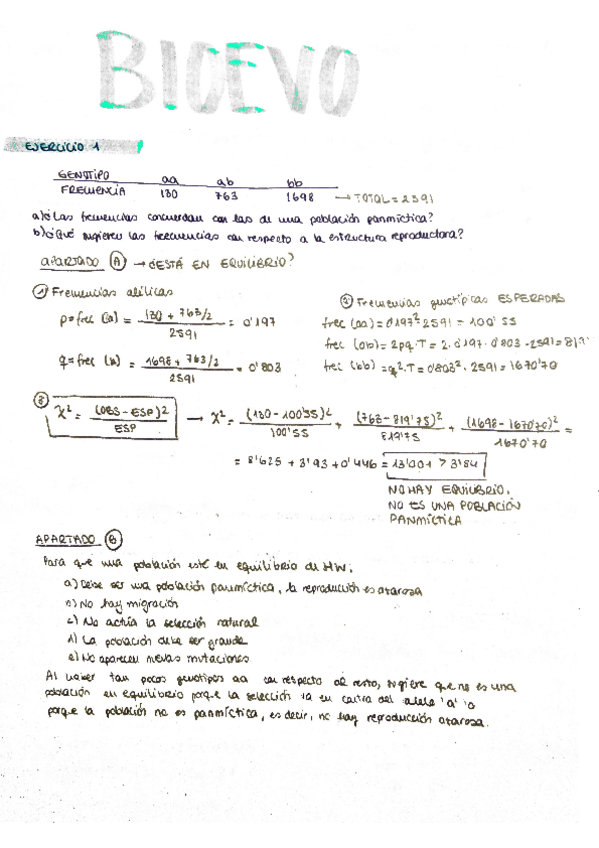 BIOEVO
EJERCICIO 1
GENOTIPO aa ab bb
FRECUENCIA 130 763 1698 → TOTAL = 2591
a) ¿Las frecuencias concuerdan con las de una población panmíctica?
b) ¿Qué sugieren las frecuencias con respecto a la estructura reproductora?
APARTADO A → ¿ESTÁ EN EQUILIBRIO?
① Frecuencias alélicas
p = frec (a) = 130 + 763/2 / 2591 = 0'197
q = frec (b) = 1698 + 763/2 / 2591 = 0'803
② Frecuencias genotípicas ESPERADAS
frec (aa) = 0'197² · 2591 = 100'55
frec (ab) = 2pq · T = 2 · 0'197 · 0'803 · 2591 = 819'
frec (bb) = q² · T = 0'803² · 2591 = 1670'70
③ χ² = (OBS - ESP)² / ESP → χ² = (130 - 100'55)² / 100'55 + (763 - 819'75)² / 819'75 + (1698 - 1670'70)² / 1670'70 =
= 8'625 + 3'93 + 0'446 = 13'001 > 3'84
NO HAY EQUILIBRIO.
NO ES UNA POBLACIÓN
PANMÍCTICA
APARTADO B
Para que una población esté en equilibrio de HW:
a) Debe ser una población panmíctica, la reproducción es atarosa
b) No hay migración
c) No actúa la selección natural
d) La población debe ser grande
e) No aparecen nuevas mutaciones
Al haber tan pocos genotipos aa con respecto al resto, sugiere que no es una
población en equilibrio porque la selección va en contra del alelo 'a' o
porque la población no es panmíctica, es decir, no hay reproducción atarosa.